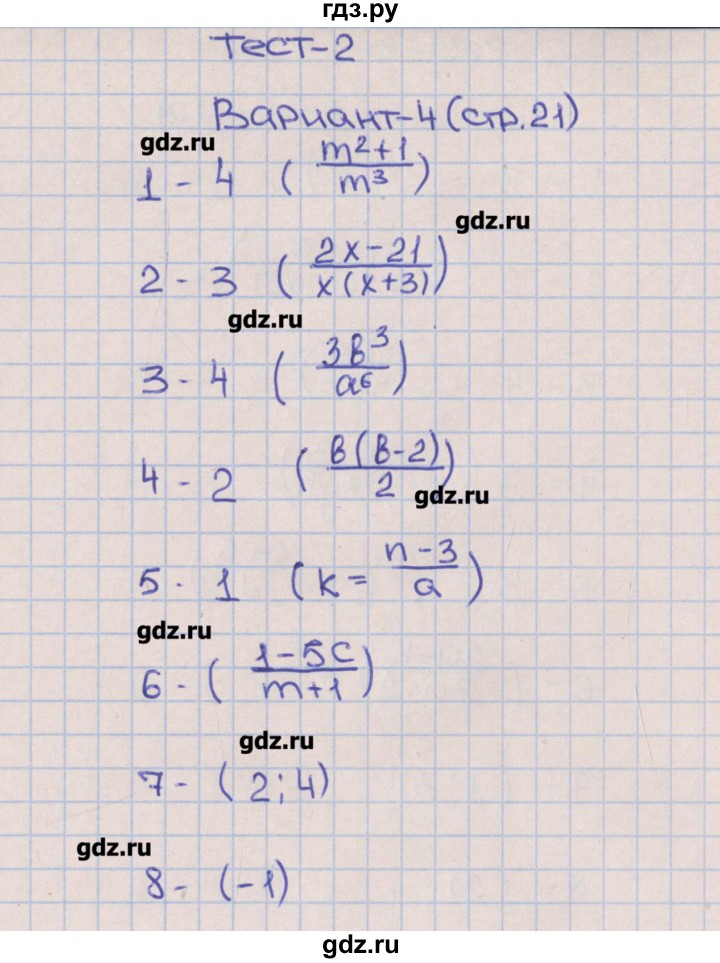 гдз.ру
Тест-2
Вариант-4 (стр.21)
gdz.ru
1 - 4 ( (m²+1)/m³ )
gdz.ru
2 - 3 ( (2x-21)/(x(x+3)) )
gdz.ru
3 - 4 ( 3в³/a⁶ )
4 - 2 ( в(в-2)/2 )
gdz.ru
5 - 1 ( k = (n-3)/a )
gdz.ru
6 - ( (1-5c)/(m+1) )
gdz.ru
7 - ( 2; 4)
gdz.ru
8 - (-1)
gdz.ru